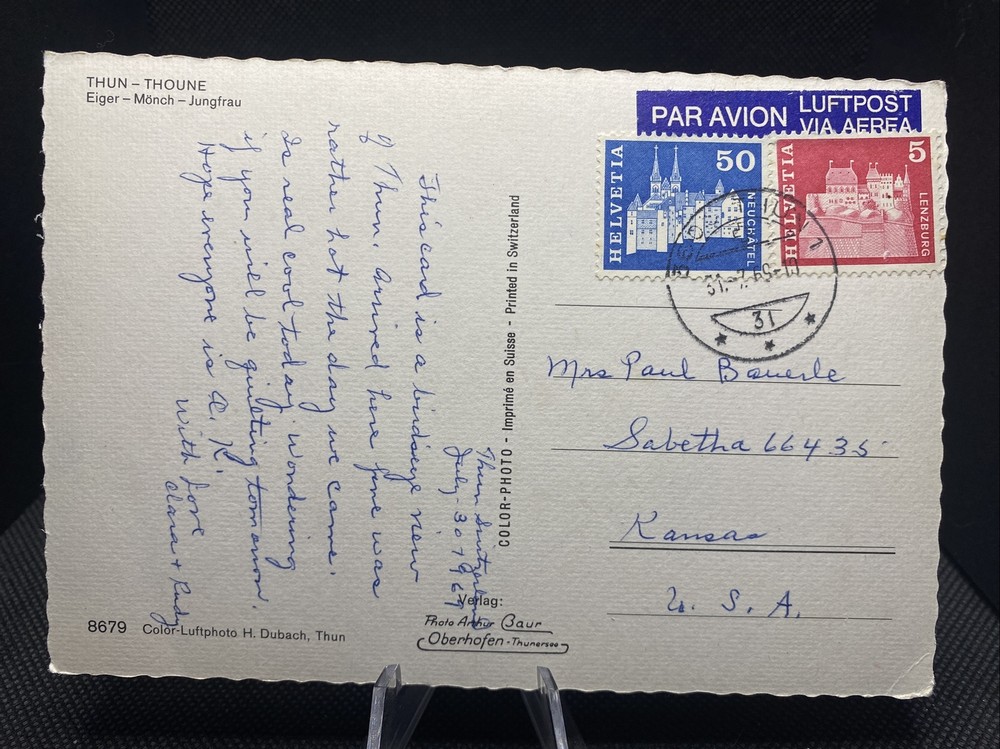 THUN – THOUNE
Eiger – Mönch – Jungfrau
PAR AVION
LUFTPOST
VIA AEREA
HELVETIA
50
NEUCHÂTEL
HELVETIA
5
LENZBURG
31.-7.69-
31
Thun Switzerland
July-30-1969
This card is a birdseye view
of Thun. Arrived here fine was
rather hot the day we came.
Is real cool today wondering
if you will be quilting tomorrow.
Hope everyone is O.K.
With Love
Clara + Rudy
COLOR-PHOTO - Imprimé en Suisse - Printed in Switzerland
Mrs Paul Bauerle
Sabetha 66435
Kansas
U. S. A.
Verlag:
Photo Arthur Baur
Oberhofen-Thunersee
8679 Color-Luftphoto H. Dubach, Thun